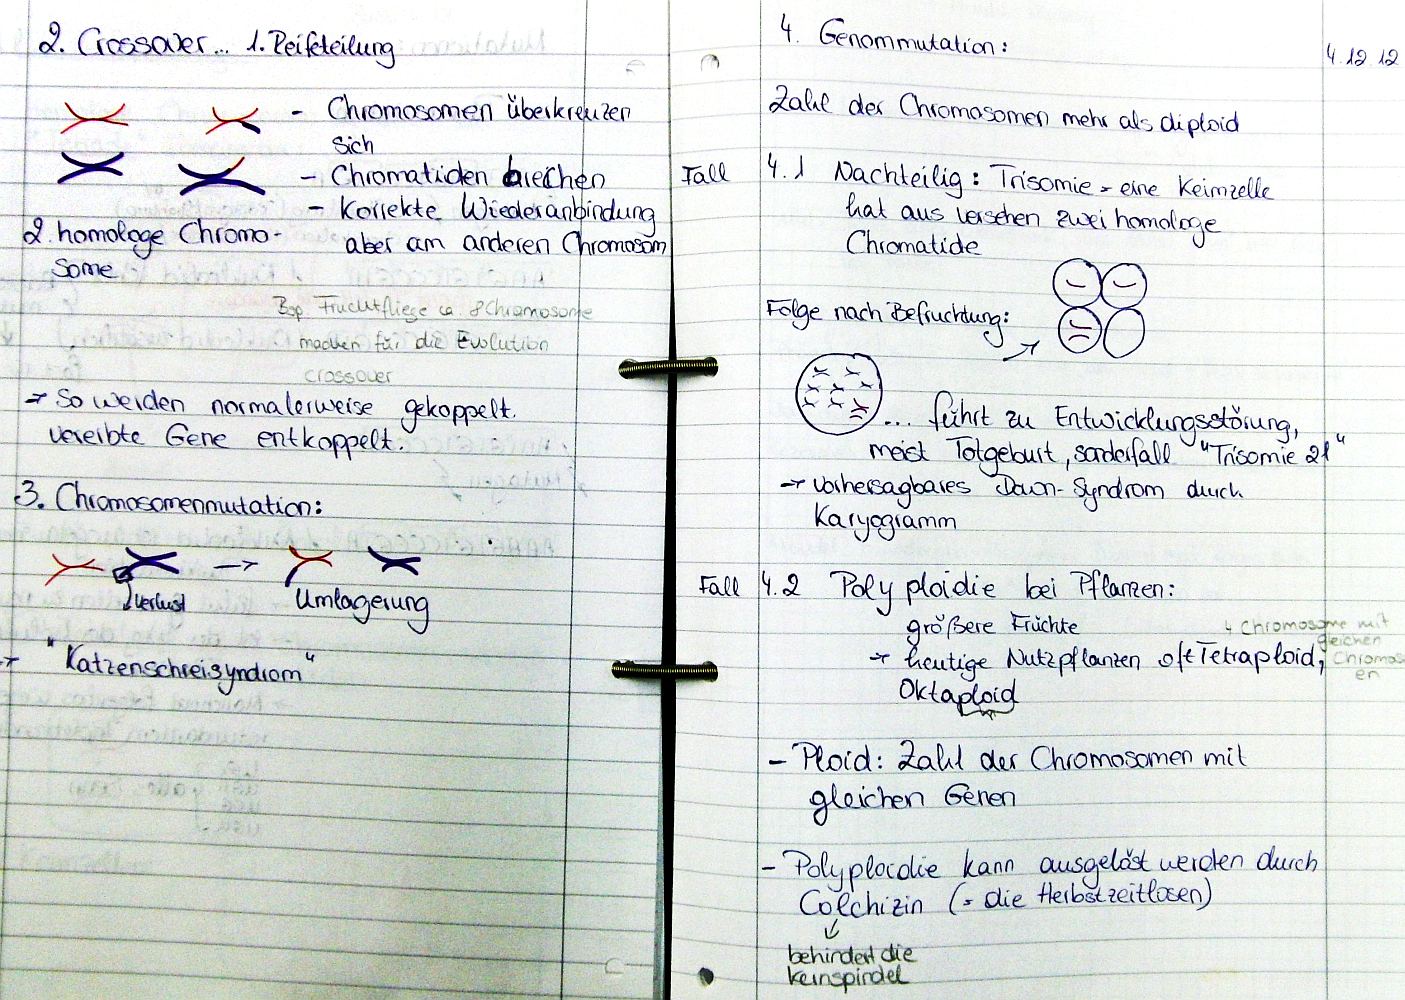 2. Crossover... 1. Reifeteilung
- Chromosomen überkreuzen
sich
- Chromatiden brechen
- Korrekte Wiederanbindung
aber am anderen Chromosom
2 homologe Chromo-
some
Bsp. Fruchtfliege ca. 8 Chromosome
machen für die Evolution
crossover
→ So werden normalerweise gekoppelt.
vererbte Gene entkoppelt.
3. Chromosomenmutation:
→
Verlust
Umlagerung
→ "Katzenschreisyndrom"
4. Genommutation:
4.12.12
Zahl der Chromosomen mehr als diploid
Fall 4.1 Nachteilig: Trisomie = eine Keimzelle
hat aus versehen zwei homologe
Chromatide
Folge nach Befruchtung:
... führt zu Entwicklungsstörung,
meist Totgeburt, sonderfall "Trisomie 21"
→ vorhersagbares Down-Syndrom durch
Karyogramm
Fall 4.2 Polyploidie bei Pflanzen:
größere Früchte
→ heutige Nutzpflanzen oft Tetraploid,
4 Chromosome mit
gleichen
Chromos
en
Oktaploid
- Ploid: Zahl der Chromosomen mit
gleichen Genen
- Polyploidie kann ausgelöst werden durch
Colchizin (= die Herbstzeitlosen)
behindert die
Keinspindel